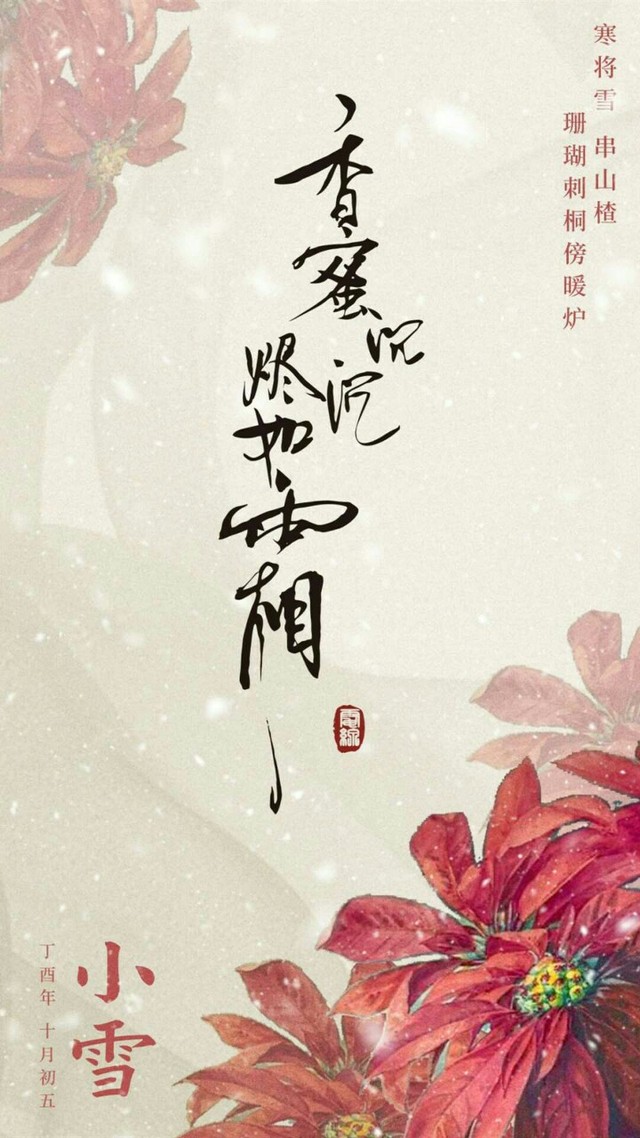 寒将雪 串山楂
珊瑚刺桐傍暖炉
香蜜沉沉
烬如霜
小雪
丁酉年 十月初五